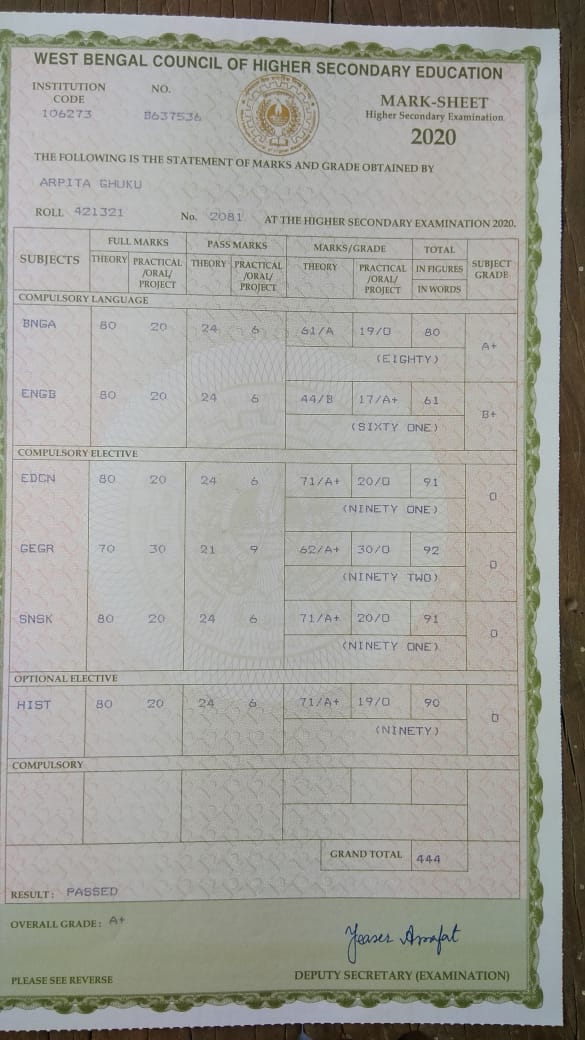 WEST BENGAL COUNCIL OF HIGHER SECONDARY EDUCATION
INSTITUTION CODE NO.
106273 B637536
MARK-SHEET
Higher Secondary Examination
2020
THE FOLLOWING IS THE STATEMENT OF MARKS AND GRADE OBTAINED BY
ARPITA GHUKU
ROLL 421321 No. 2081 AT THE HIGHER SECONDARY EXAMINATION 2020.
SUBJECTS FULL MARKS PASS MARKS MARKS/GRADE TOTAL SUBJECT GRADE
THEORY PRACTICAL /ORAL/ PROJECT THEORY PRACTICAL /ORAL/ PROJECT THEORY PRACTICAL /ORAL/ PROJECT IN FIGURES
IN WORDS
COMPULSORY LANGUAGE
BNGA 80 20 24 6 61/A 19/O 80 A+
(EIGHTY)
ENGB 80 20 24 6 44/B 17/A+ 61 B+
(SIXTY ONE)
COMPULSORY ELECTIVE
EDCN 80 20 24 6 71/A+ 20/O 91 O
(NINETY ONE)
GEGR 70 30 21 9 62/A+ 30/O 92 O
(NINETY TWO)
SNSK 80 20 24 6 71/A+ 20/O 91 O
(NINETY ONE)
OPTIONAL ELECTIVE
HIST 80 20 24 6 71/A+ 19/O 90 O
(NINETY)
COMPULSORY
GRAND TOTAL 444
RESULT : PASSED
OVERALL GRADE : A+
DEPUTY SECRETARY (EXAMINATION)
PLEASE SEE REVERSE